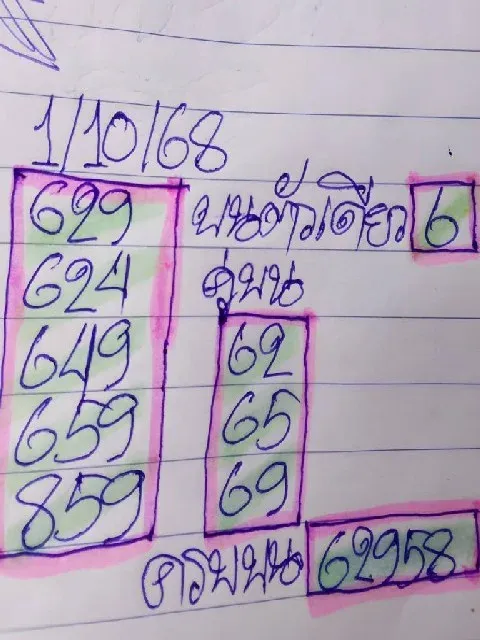 1/10/68
629 บนตัวเดียว 6
624 คู่บน
649 62
659 65
859 69
ครบบน 62958